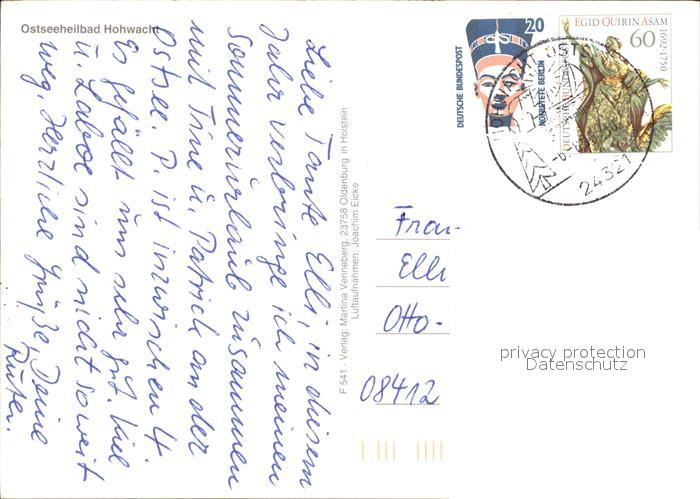 Ostseeheilbad Hohwacht
Liebe Tante Elli, in diesem
Jahr verbringe ich meinen
Sommerurlaub zusammen
mit Trine u. Patrick an der
Ostsee. P. ist inzwischen 4.
Es gefällt uns sehr gut. Kiel
u. Laboe sind nicht so weit
weg. Herzliche Grüße, Deine
F 541 · Verlag: Martina Venneberg, 23758 Oldenburg in Holstein
Luftaufnahmen: Joachim Eicke
DEUTSCHE BUNDESPOST
20
NOFRETETE BERLIN
EGID QUIRIN ASAM
60
1692-1750
DEUTSCHE BUNDESPOST
24321
Frau
Elli
Otto-
08412
privacy protection
Datenschutz